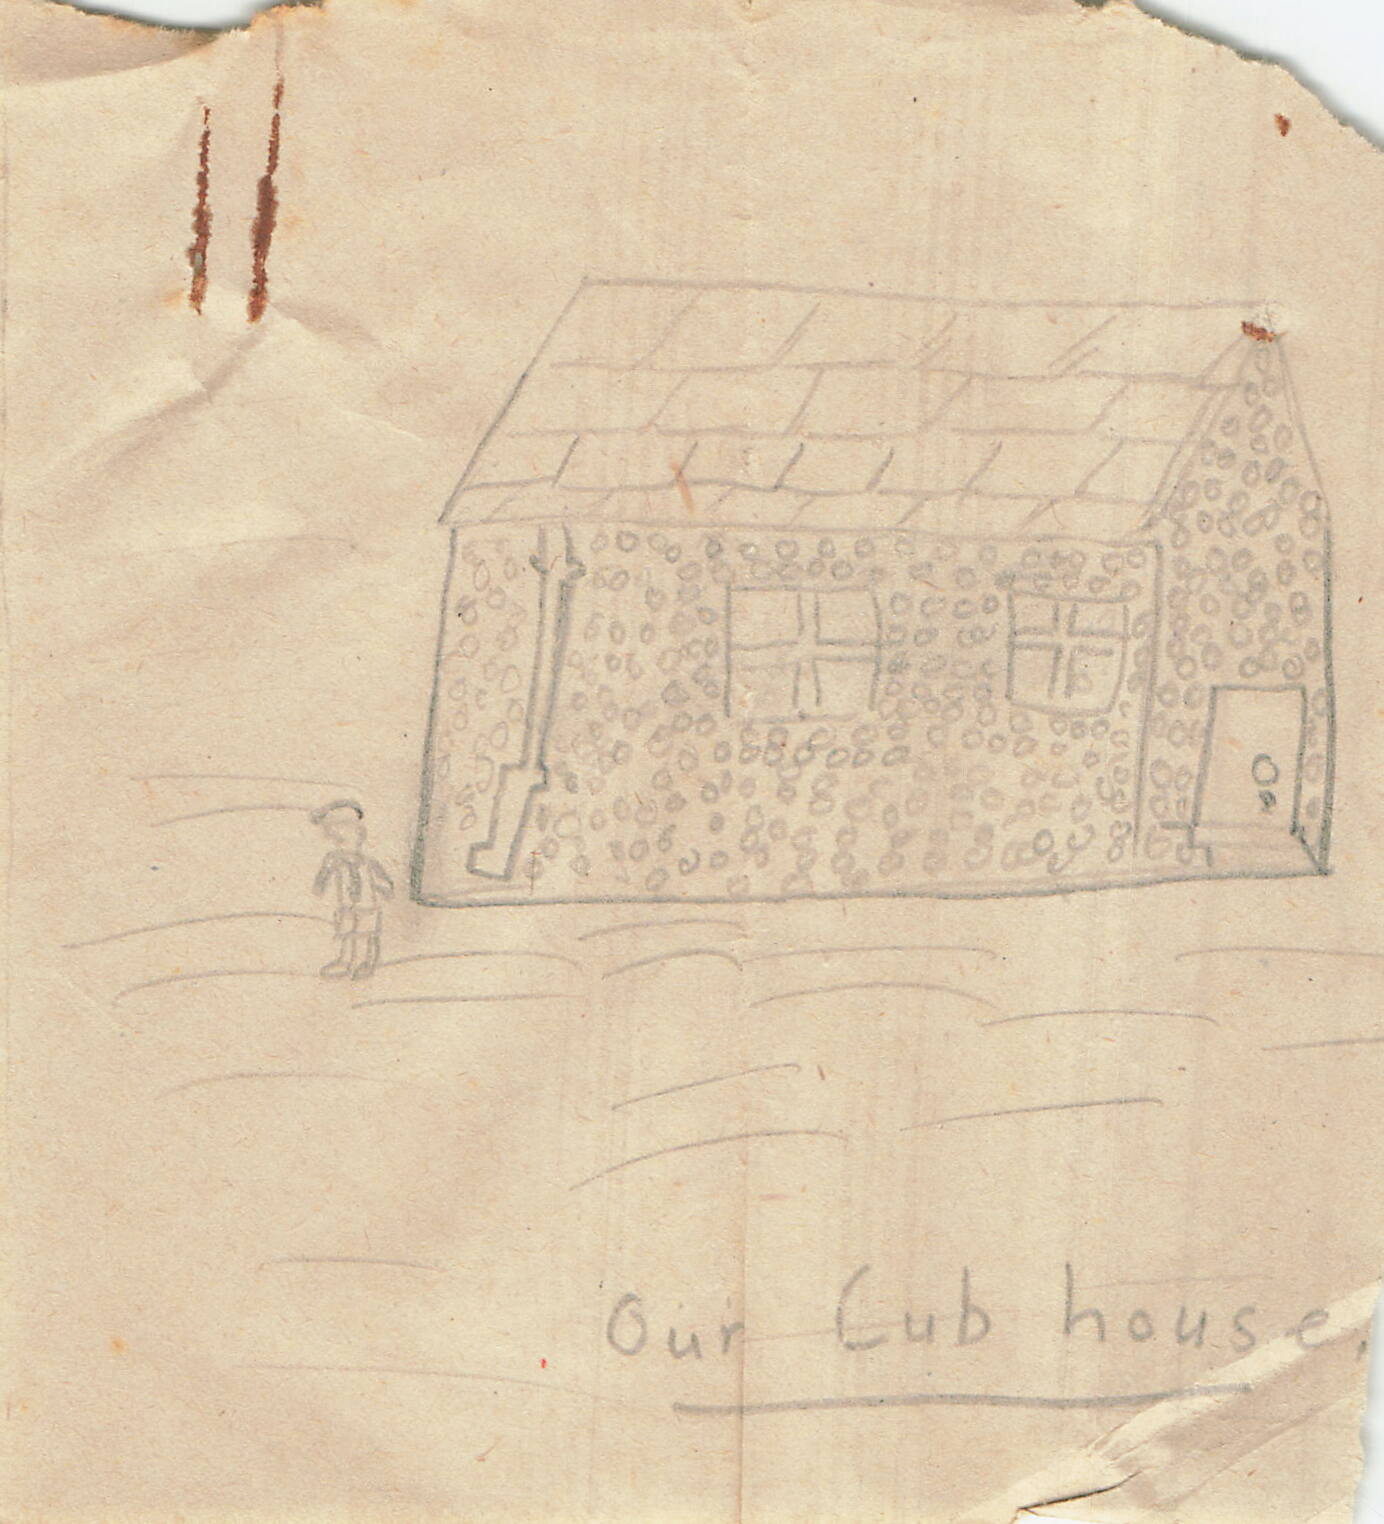 Our Cub house.